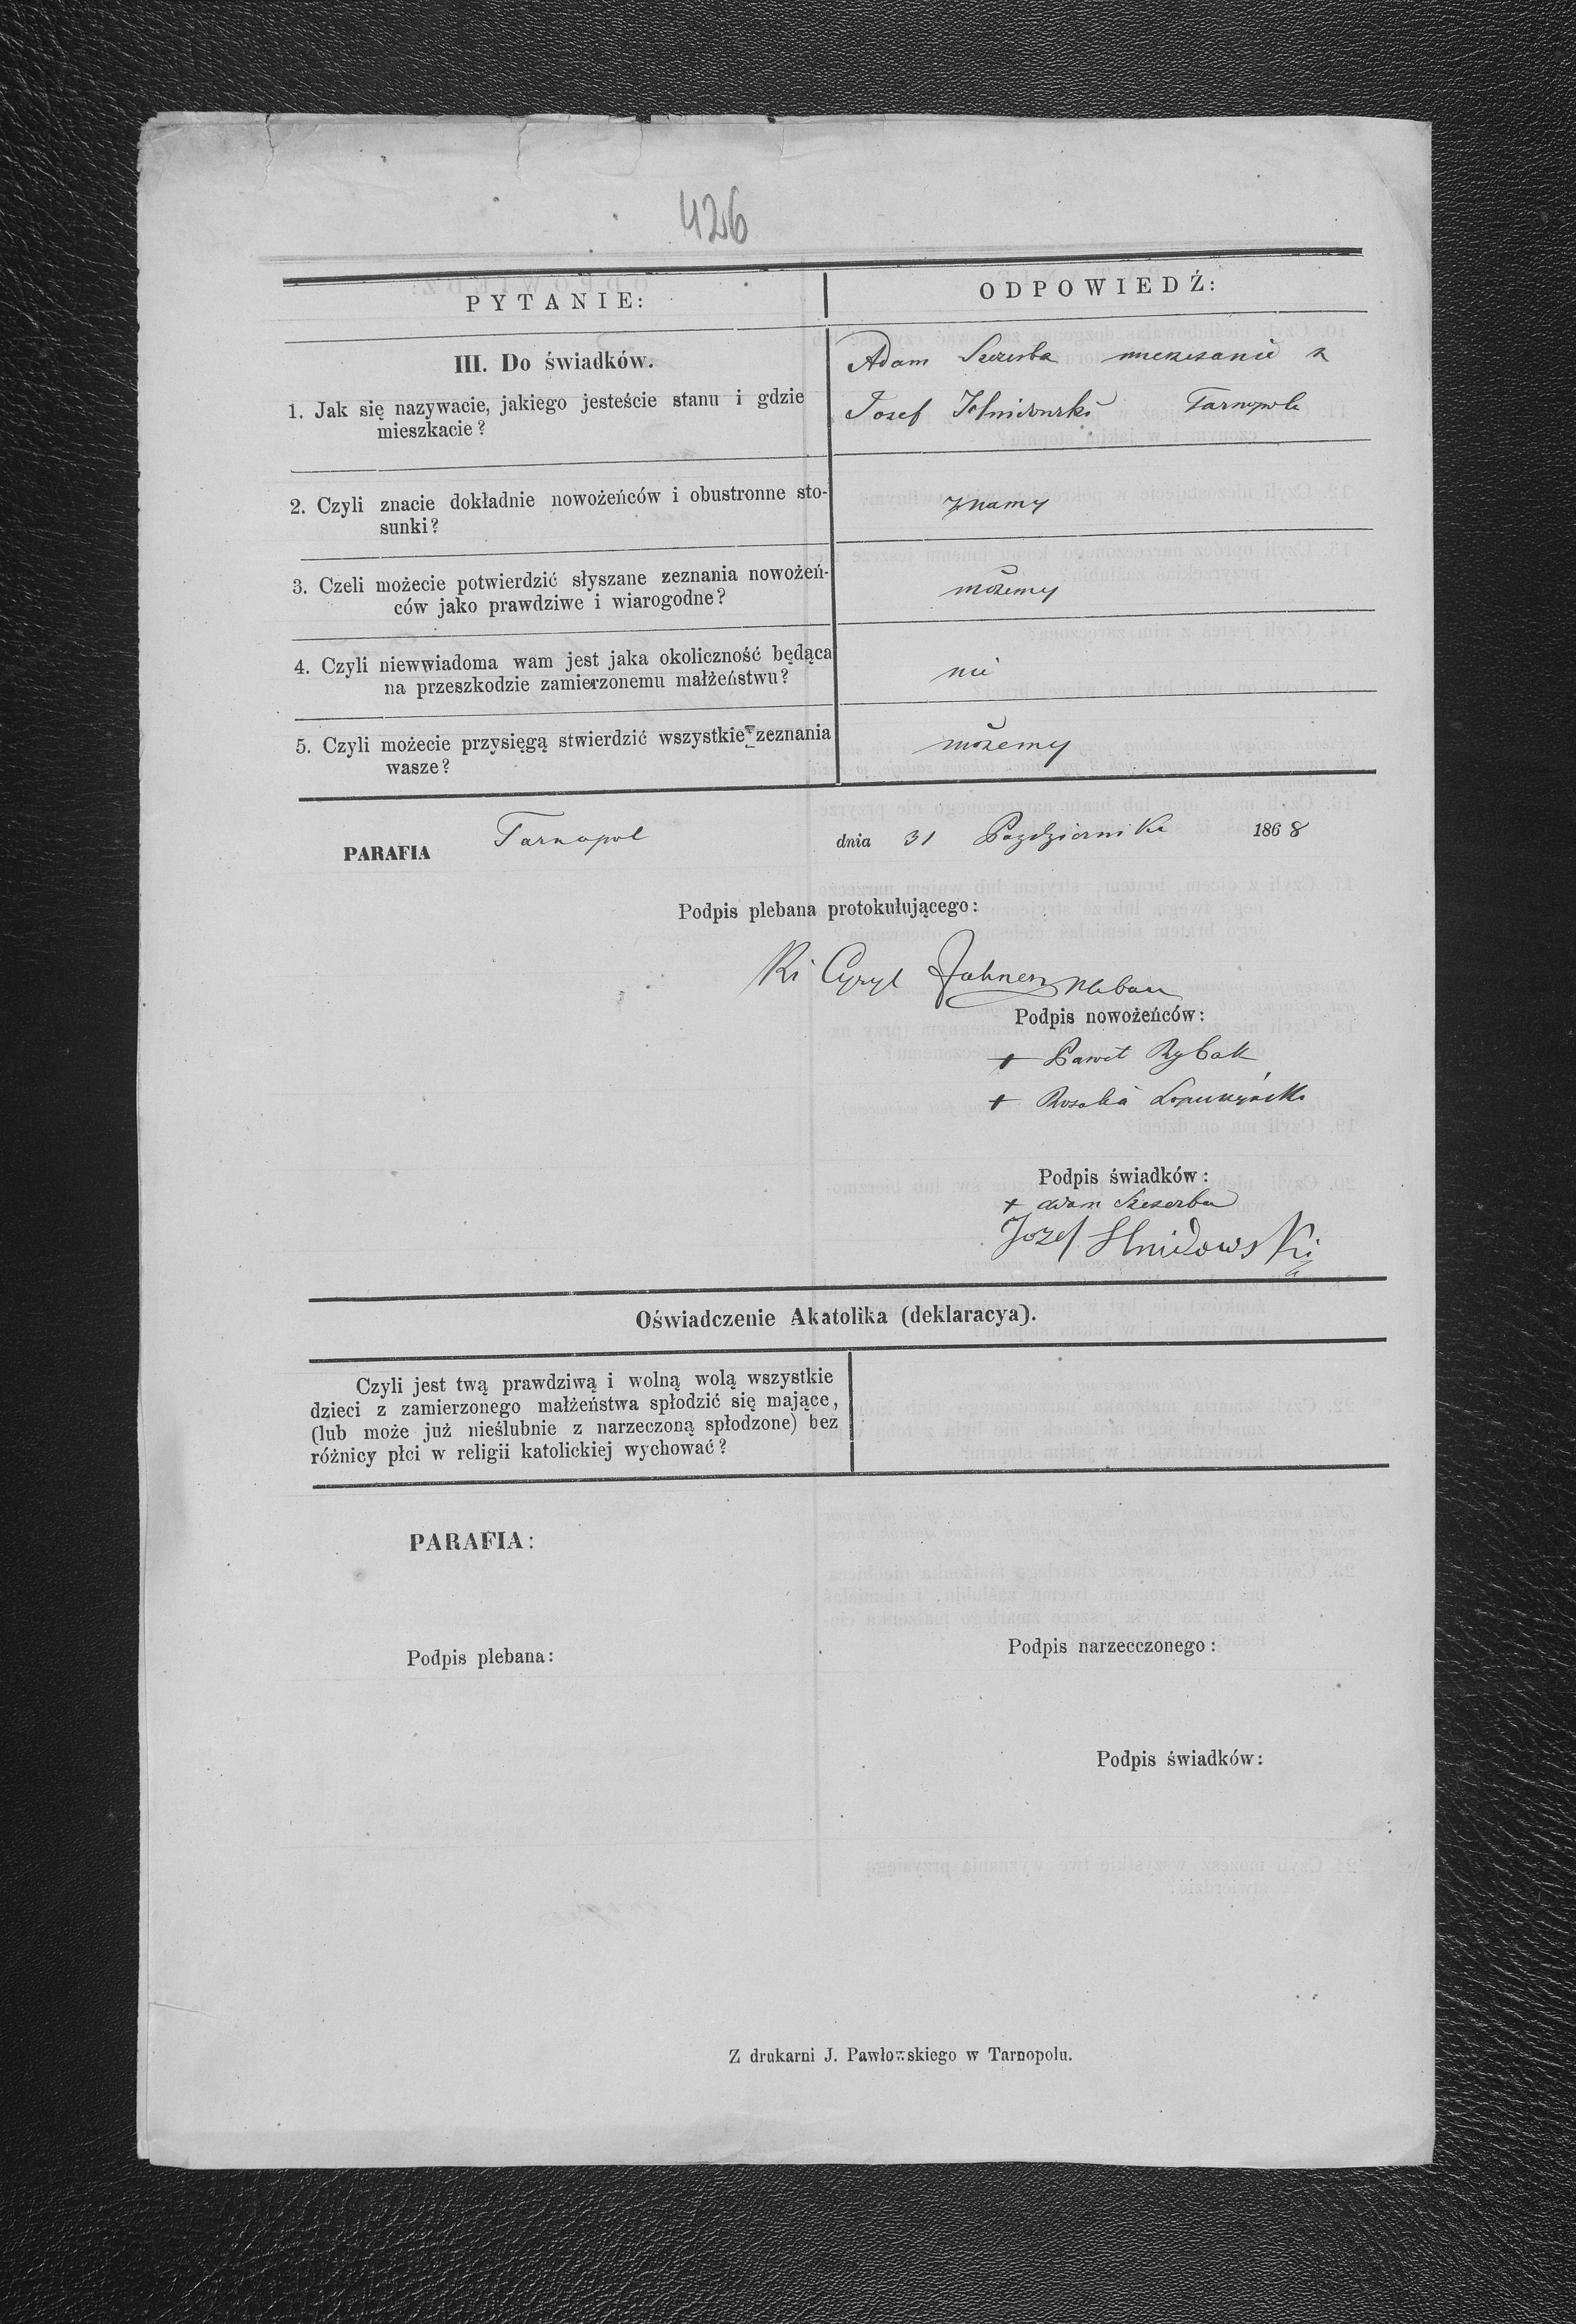 426
PYTANIE:
ODPOWIEDŹ:
III. Do świadków.
1. Jak się nazywacie, jakiego jesteście stanu i gdzie
mieszkacie?
Adam Szczerba mieszczanie z
Josef Hnidowski Tarnopola
2. Czyli znacie dokładnie nowożeńców i obustronne sto-
sunki?
znamy
3. Czeli możecie potwierdzić słyszane zeznania nowożeń-
ców jako prawdziwe i wiarogodne?
możemy
4. Czyli niewwiadoma wam jest jaka okoliczność będąca
na przeszkodzie zamierzonemu małżeństwu?
nie
5. Czyli możecie przysięgą stwierdzić wszystkie zeznania
wasze?
możemy
PARAFIA Tarnopol dnia 31 Pazdziernika 1868
Podpis plebana protokułującego:
Cyryl pleban
Podpis nowożeńców:
+ Paweł Rybak
+ Rosalia
Podpis świadków:
+ Adam Szczerba
Jozef Hnidowski
Oświadczenie Akatolika (deklaracya).
Czyli jest twą prawdziwą i wolną wolą wszystkie
dzieci z zamierzonego małżeństwa spłodzić się mające,
(lub może już nieślubnie z narzeczoną spłodzone) bez
różnicy płci w religii katolickiej wychować?
PARAFIA:
Podpis plebana:
Podpis narzecczonego:
Podpis świadków:
Z drukarni J. Pawłowskiego w Tarnopolu.